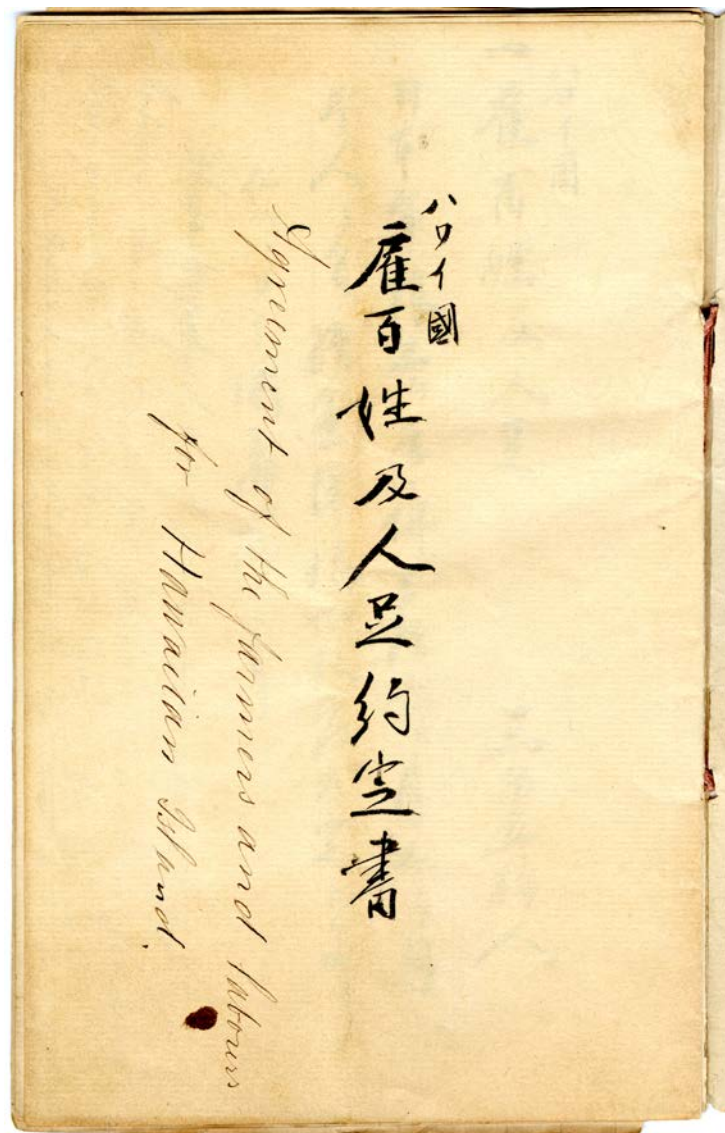 ハワイ國
雇百姓及人足約定書
Agreement of the farmers and labours
for Hawaiian Island.